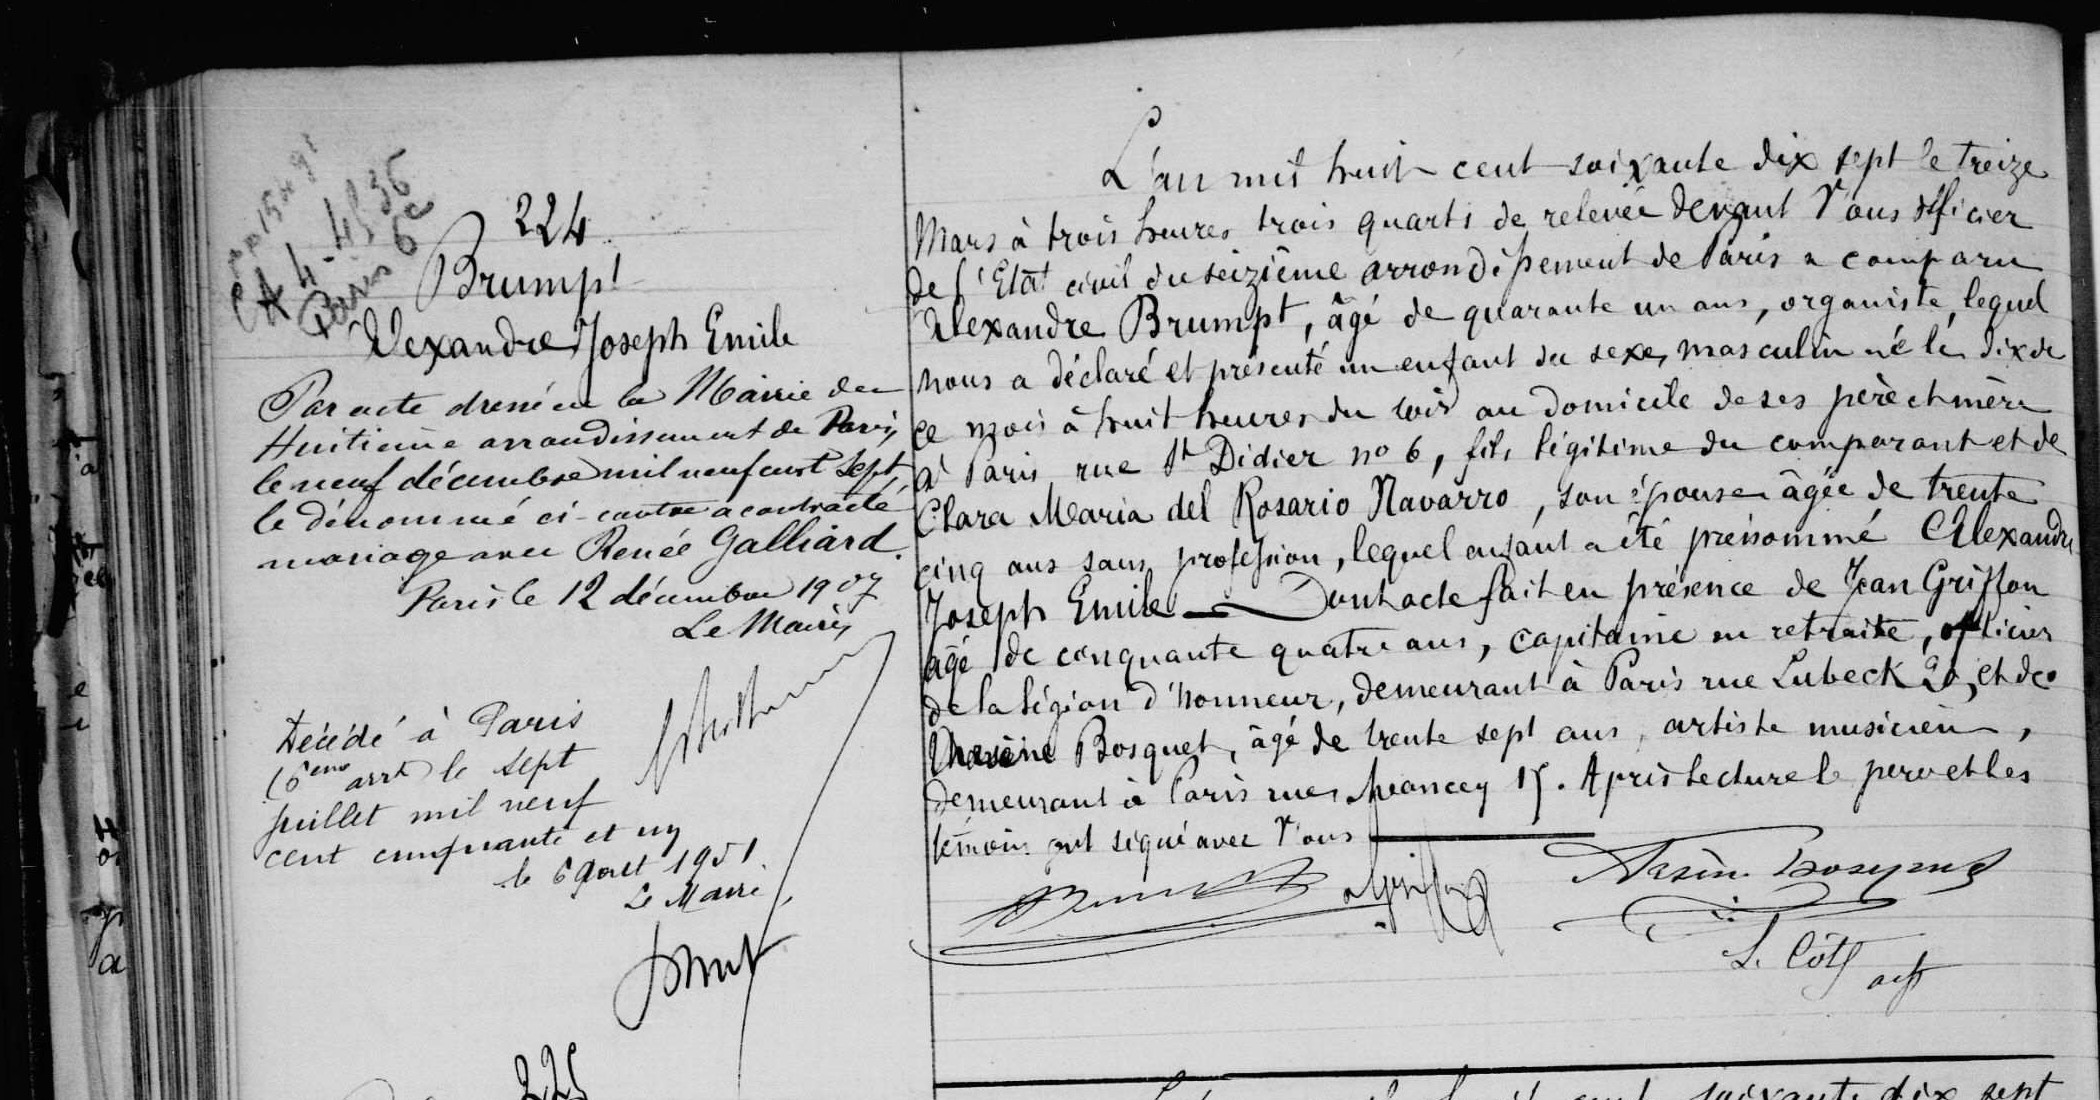 224
Brumpt
Alexandre Joseph Emile
Par acte dressé en la Mairie du
Huitième arrondissement de Paris,
le neuf décembre mil neuf cent sept
le dénommé ci-contre a contracté
mariage avec Renée Galliard.
Paris le 12 décembre 1907
Le Maire,
Décédé à Paris
6eme arrt le sept
juillet mil neuf
cent cinquante et un
le 6 Août 1951.
Le Maire,
L'an mil huit cent soixante dix sept le treize
Mars à trois heures trois quarts de relevée devant Nous officier
de l'Etat civil du seizième arrondissement de Paris a comparu
Alexandre Brumpt, âgé de quarante un ans, organiste, lequel
nous a déclaré et présenté un enfant du sexe masculin né le dix de
ce mois à huit heures du soir au domicile de ses père et mère
à Paris rue St Didier no 6, fils légitime du comparant et de
Clara Maria del Rosario Navarro, son épouse âgée de trente
cinq ans sans profession, lequel enfant a été prénommé Alexandre
Joseph Emile — Dont acte fait en présence de Jean Griffon
âgé de cinquante quatre ans, capitaine en retraite, officier
de la légion d'honneur, demeurant à Paris rue Lubeck 20, et de
Bosquet, âgé de trente sept ans, artiste musicien,
demeurant à Paris rue 15. Après lecture le père et les
témoins ont signé avec Nous
225
soixante dix sept